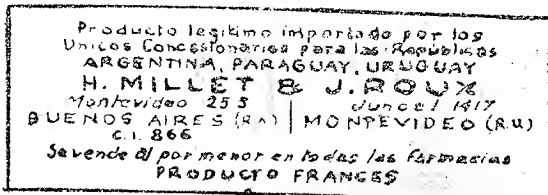 Producto legitimo importado por los
Unicos Concessionarios para las Republicas
ARGENTINA, PARAGUAY, URUGUAY
H. MILLET & J. ROUX
Montevideo 255 | Juncal 1417
BUENOS AIRES (RA) | MONTEVIDEO (R.U)
C.I. 866
Se vende al por menor en todas las Farmacias
PRODUCTO FRANCES